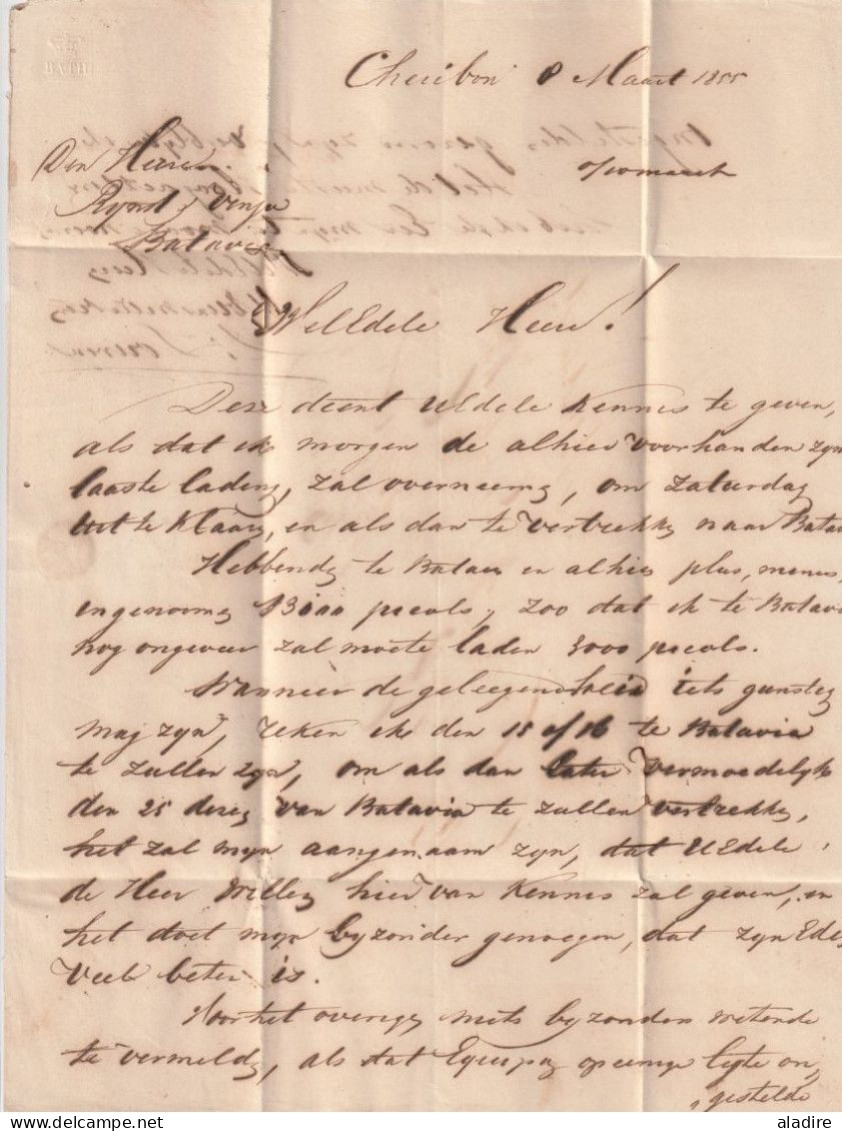 BATH
Cheribon 8 Maart 1855
Den Heeren
Reynst & Vinju
Batavia
WelEdele Heere!
Deze dient UEdele Kennes te geven,
als dat ik morgen de alhier voorhanden zyn
laaste lading, zal overneeme, om Zaturdag
uit te Klaare, en als dan te vertrekke naar Batav
Hebbende te Batav en alhier plus, menus,
ingenoome 13000 pecols, zoo dat ik te Batavi
nog ongeveer zal moete laden 3000 pecols.
Wanneer de geleegendheid iets gunsteg
mag zyn, reken ik den 15 of 16 te Batavia
te zullen zyn, om als dan later vermoedelyk
den 25 dezer van Batavia te zullen vertrekke,
het zal myn aangenaam zyn, dat UEdele
de Heer Willeg hier van Kennes zal geven, en
het doet myn byzonder genoegen, dat zyn Ede
Veel beter is.
Voor het overige niets byzonders wetende
te vermelde, als dat Equipage op eenige ligte on,
„gestelde
aladire